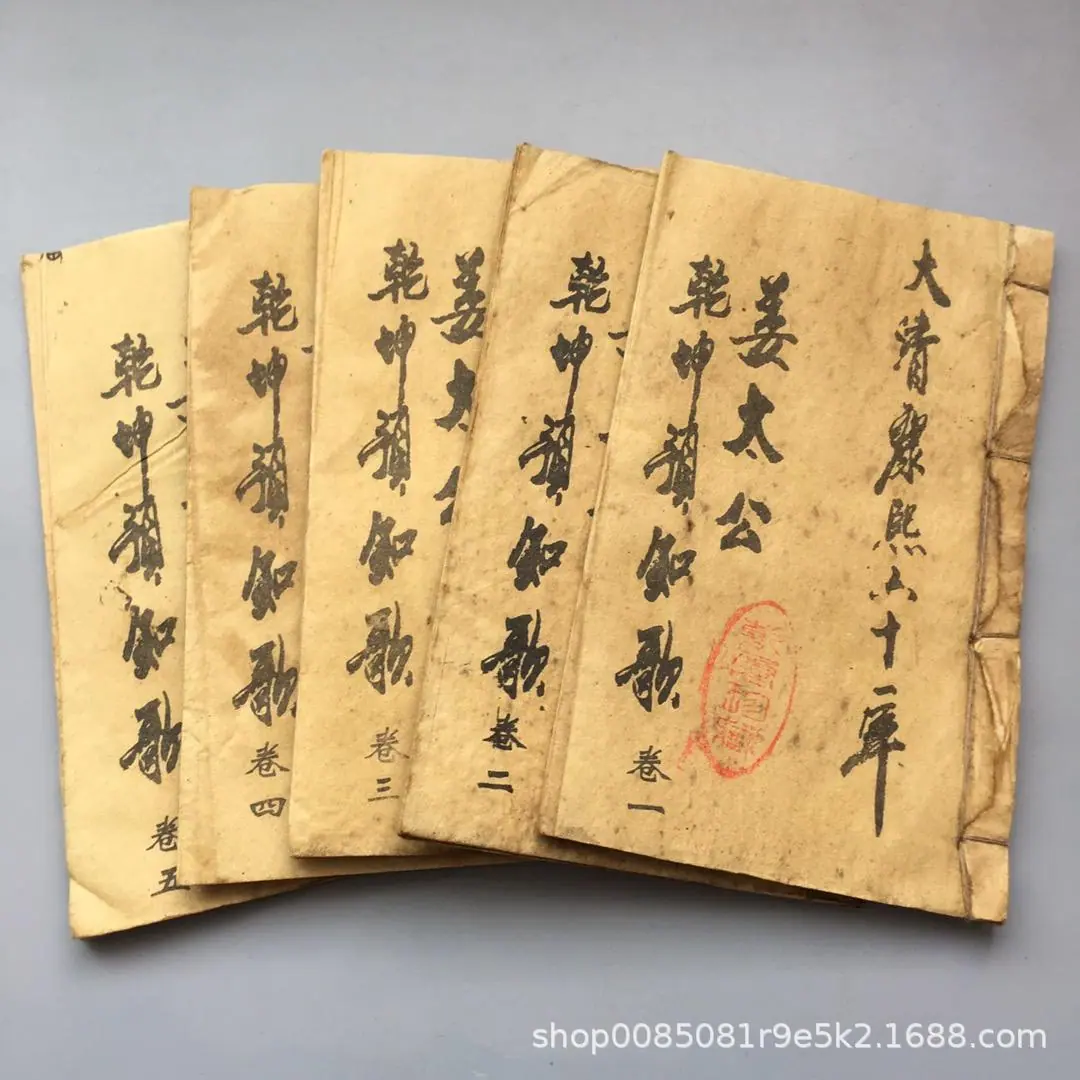 大清康熙六十一年
姜太公
乾坤預知歌
卷一
乾坤預知歌
卷二
姜太公
乾坤預知歌
卷三
乾坤預知歌
卷四
乾坤預知歌
卷五
shop0085081r9e5k2.1688.com